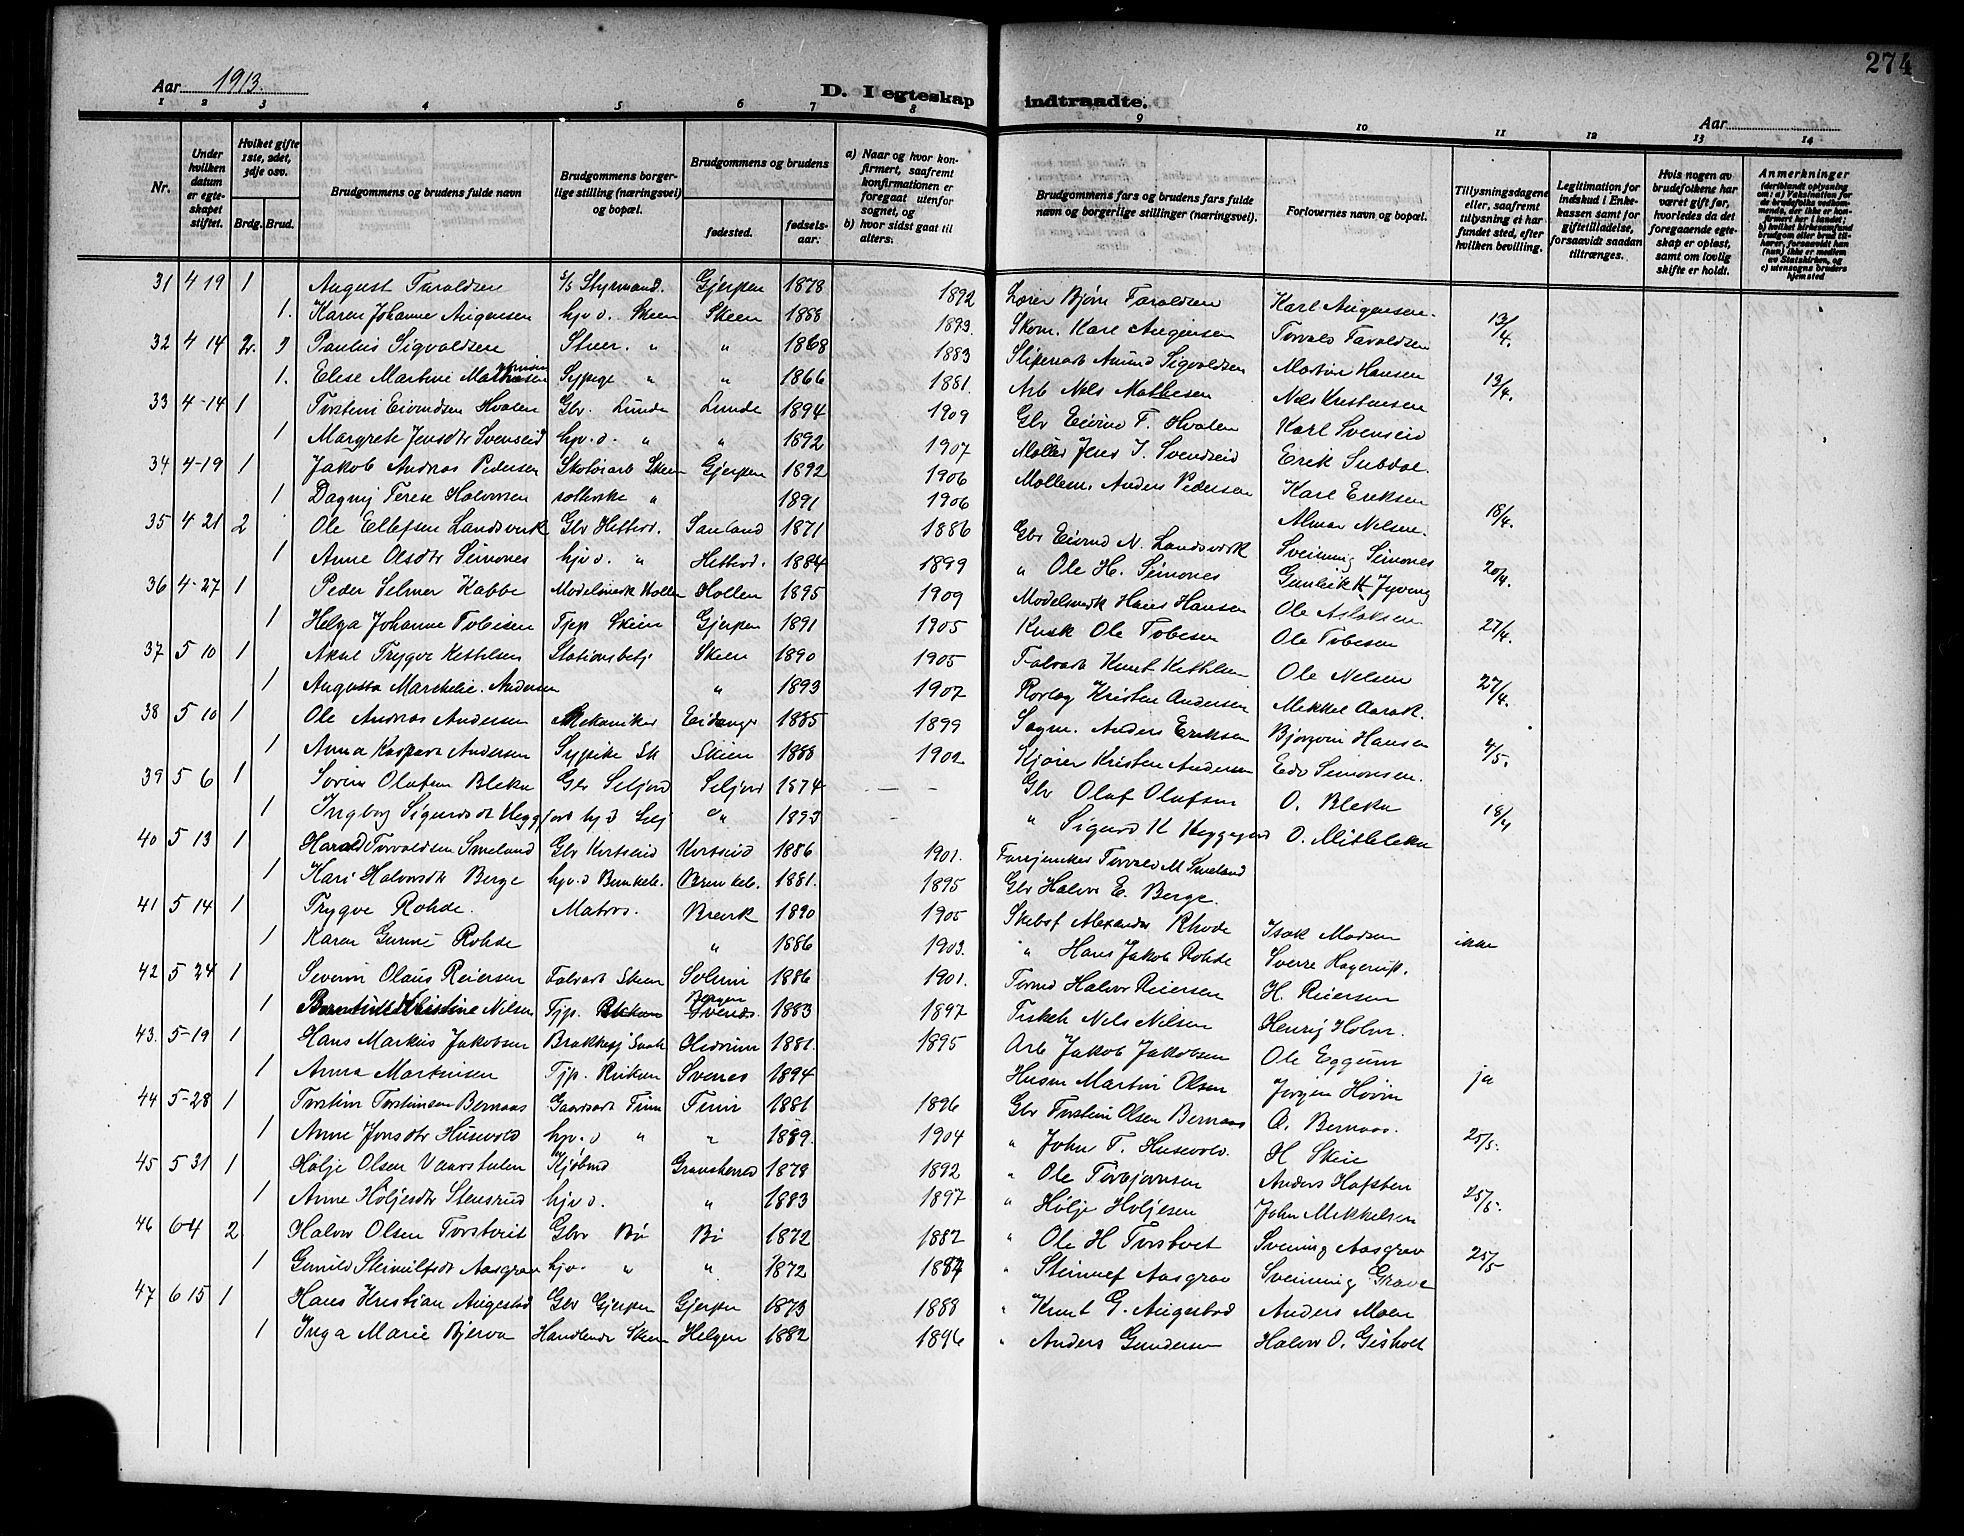 274
Aar 1913. D. I egteskap indtraadte. Aar
1 2 3 4 5 6 7 8 9 10 11 12 13 14
Nr. | Under hvilken datum er egteskapet stiftet. | Hvilket gifte 1ste, 2det, 3dje osv. Brdg. Brud. | Brudgommens og brudens fulde navn | Brudgommens borgerlige stilling (næringsvei) og bopæl. | Brudgommens og brudens fødested. fødselsaar: | a) Naar og hvor konfirmert, saafremt konfirmationen er foregaat utenfor sognet, og b) hvor sidst gaat til alters: | Brudgommens fars og brudens fars fulde navn og borgerlige stillinger (næringsvei). | Forlovernes navn og bopæl. | Tillysningsdagene eller, saafremt tillysning ei har fundet sted, efter hvilken bevilling. | Legitimation for indskud i Enkekassen samt for giftetilladelse, forsaavidt saadan tiltrænges. | Hvis nogen av brudefolkene har været gift før, hvorledes da det foregaaende egteskap er opløst, samt om lovlig skifte er holdt. | Anmerkninger (deriblandt oplysning om: a) Vaksination for de brudefolks vedkommende, der ikke er konfirmert her i landet; b) hvilket kirkesamfund brudgom eller brud tilhører, forsaavidt han (hun) ikke er medlem av Statskirken, og c) utensogns bruders hjemsted
31 4 19 1 August Taraldsen s/s Styrmand. Gjerpen 1878 1892 Lærer Bjørn Taraldsen Karl Augensen.
1. Karen Johanne Augensen hjv d. Skeen Skeen 1888 1893. Skom. Karl Augensen Torvald Taraldsen 13/4.
32 4 14 2. Paulus Sigvaldsen Stuer. " " 1868 1883 Sliperarb Amund Sigvaldsen Martin Hansen
1. Elise Martine Mathisen Sypige " " 1866 1881. Arb Nels Mathesen Nels Kristensen 13/4.
33 4-14 1 Torstein Eivindsen Hvalen Gbr. Lunde Lunde 1894 1909 Gbr Eivind T. Hvalen Karl Svenseid
1 Margrete Jensdtr Svenseid hjv. d. " " 1892 1907 Møller Jens J. Svendseid Erik Subdal.
34 4-19 1 Jakob Andreas Pedersen Skotøiarb Skeen Gjerpen 1892 1906 Møllem. Anders Pedersen Karl Eriksen
1 Dagny Terese Halvorsen " 1891 1906 Almar Nelsen. 18/4.
35 4 21 2 Ole Ellefsen Landsverk Gbr Hitterd. Sauland 1871 1886 Gbr Eivind N. Landsverk Sveinung Semones
1 Anne Olsdtr Semones hjv d. " Hitterd. 1884 1899 " Ole H. Semones Gunleik H. 20/4.
36 4-27 1 Peder Selmer Kabbe Modelsnedk Hollen Hollen 1895 1909 Modelsnedk Hans Hansen Ole Aslaksen
1 Helga Johanne Tobisen Tjep Skien Gjerpen 1891 1905 Kusk Ole Tobesen Ole Tobesen 27/4.
37 5 10 1 Aksel Trygve Kettilsen Stationsbetj Skeen 1890 1905 Fabrarb Knut Kettelsen Ole Nelsen
1 Augusta Marchelie. Andersen " 1893 1907 Rørlæg Kristen Andersen Mekkel Aarak. 27/4.
38 5 10 1 Ole Andreas Andersen Mekaniker Eidanger 1885 1899 Sagm. Anders Eriksen Bjorgvin Hansen
1 Anna Kaspara Andersen Sypike Sk Skien 1888 1902 Kjører Kristen Andersen Edv Semonsen. 4/5.
39 5 6 1 Søren Olafsen Bleka Gbr Seljord Seljord 1874 — - Gbr Olaf Olafsen O. Bleka
1 Ingborg Sigurdsdt Heggjord hj d Selj " 1893 " Sigurd K Heggejord O. Mitbleka 18/4
40 5 13 1 Harald Torvaldsen Smeland Gbr Kvitseid Kvitseid 1886 1901. Fanejunker Torvald M Smeland
1 Kari Halvorsdtr Berge hjv. d Brunkeb. Brunkeb. 1881. 1895 Gbr Halvor E. Berge.
41 5 14 1 Trygve Rohde. Matros. Brevik 1890 1905 Skibsf Alexander Rhode Isak Madsen
1 Karen Gunne Rohde " 1886 1903. " Hans Jakob Rohde Sverre Hagerup. ikke
42 5 24 1 Severin Olaus Reiersen Fabrarb Skeen Solum 1886 1901. Tømd Halvor Reiersen H. Reiersen
1 Kristine Nilsen Tjp. 1883 1897 Fisker Nels Nelsen Henrig Holm.
43. 5-19 1 Hans Markus Jakobsen 1881. 1895 Arb Jakob Jakobsen Ole Eggum
1 Anna Martinsen Tjp. Rjukan Svenes 1894 Husm Martin Olsen Jørgen Hovin ja
44 5-28 1 Torstein Torsteinsen Bernaas Gaardarb Tinn Tinn 1881 1896 Gbr Torstein Olsen Bernaas O. Bernaas.
1 Anne Jonsdtr Husevold hjv. d " " 1889. 1904 " John T. Husevold. H Skeie 25/5.
45 5 31 1 Hølje Olsen Vaarstulen Kjøbmd Gransherred 1878 1892 " Ole Torbjørnsen Anders Hafsten
1 Anne Høljesdtr Stensrud hjv d. " 1883 1897 " Hølje Høljesen John Mikkelsen 25/5.
46 6 4 2 Halvor Olsen Torstveit Gbr Bø Bø 1872 1887 " Ole H Torstveit Sveinung Aasgrav
1 Gunild Steinulfsdt Aasgrav hjv. " " 1872 1887 " Steinulf Aasgrav Sveinung Grave 25/5
47 6 15 1 Hans Kristian Augestad Gbr Gjerpen Gjerpen 1873 1888 " Knut G. Augestad Anders Moen
1 Inga Marie Bjerva Handlende Skeen Helgen 1882 1896 " Anders Gundersen Halvor O. Gisholt